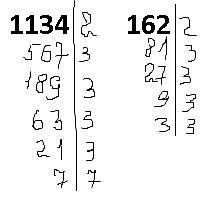 1134 2
567 3
189 3
63 3
21 3
7 7
162 2
81 3
27 3
9 3
3 3